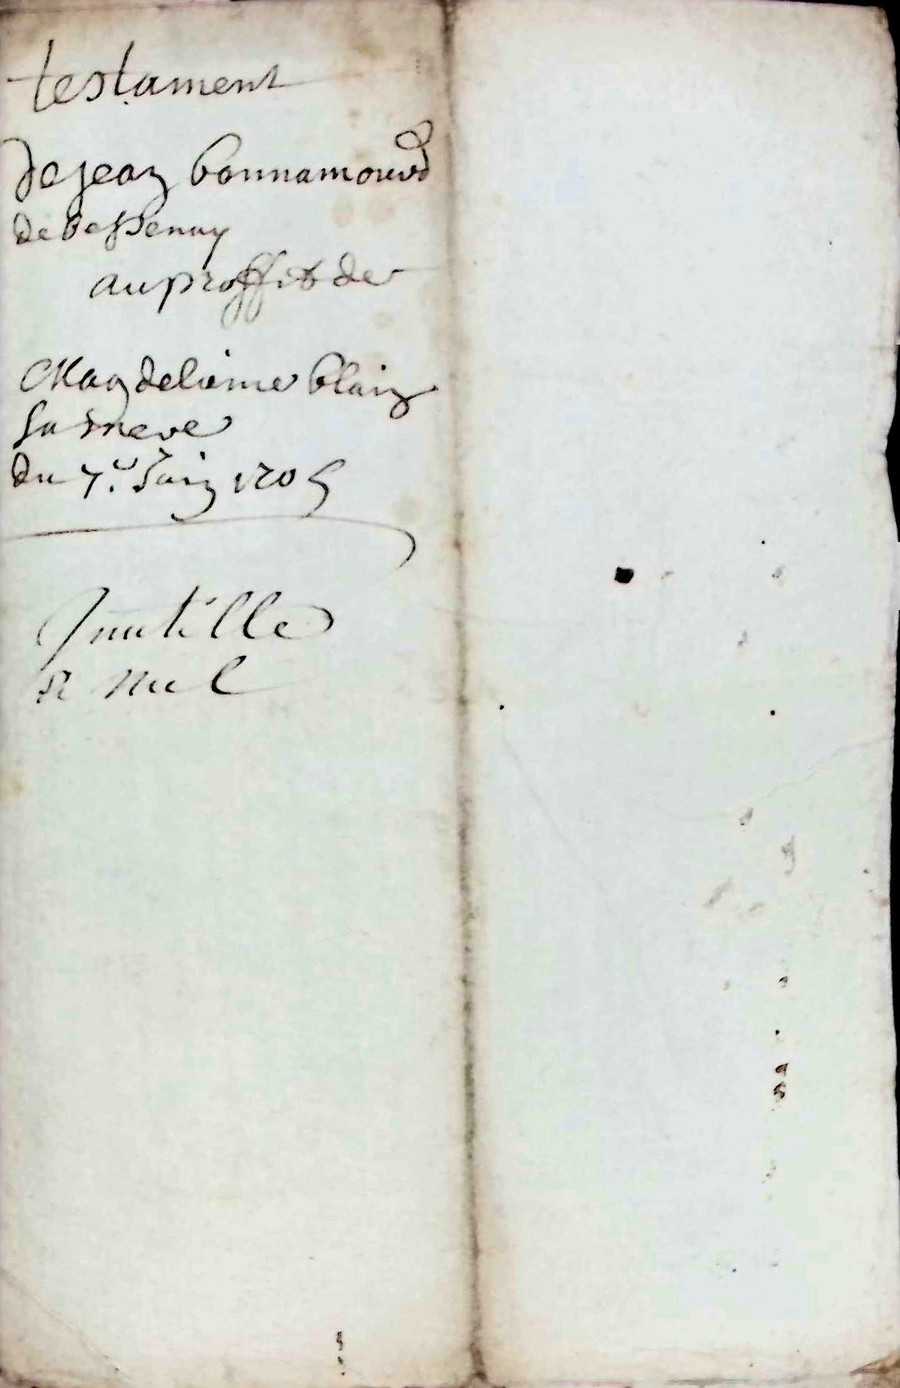 testament
de jean bonnamourd
de bessenay
au proffit de
Magdeleine blain
sa mere
du 7.e Juin 1705
Inutille
et nul